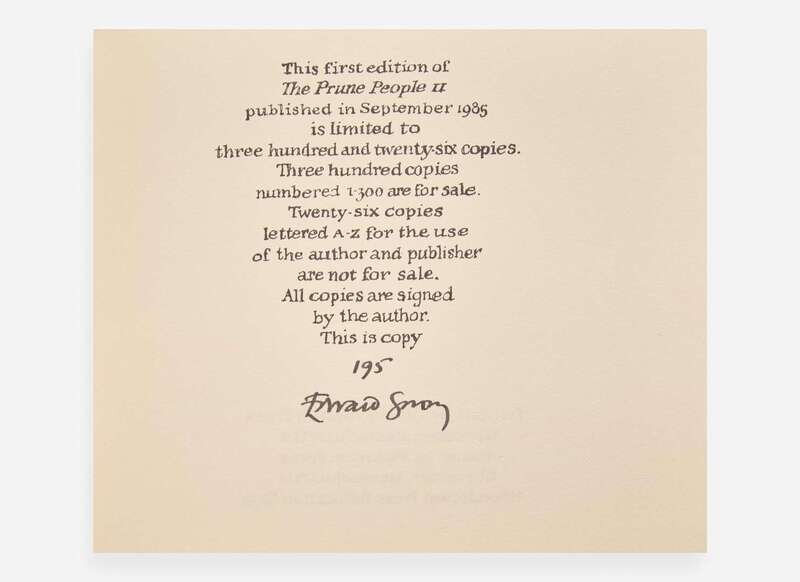 This first edition of
The Prune People II
published in September 1985
is limited to
three hundred and twenty-six copies.
Three hundred copies
numbered 1-300 are for sale.
Twenty-six copies
lettered A-Z for the use
of the author and publisher
are not for sale.
All copies are signed
by the author.
This is copy
195
Edward Gorey